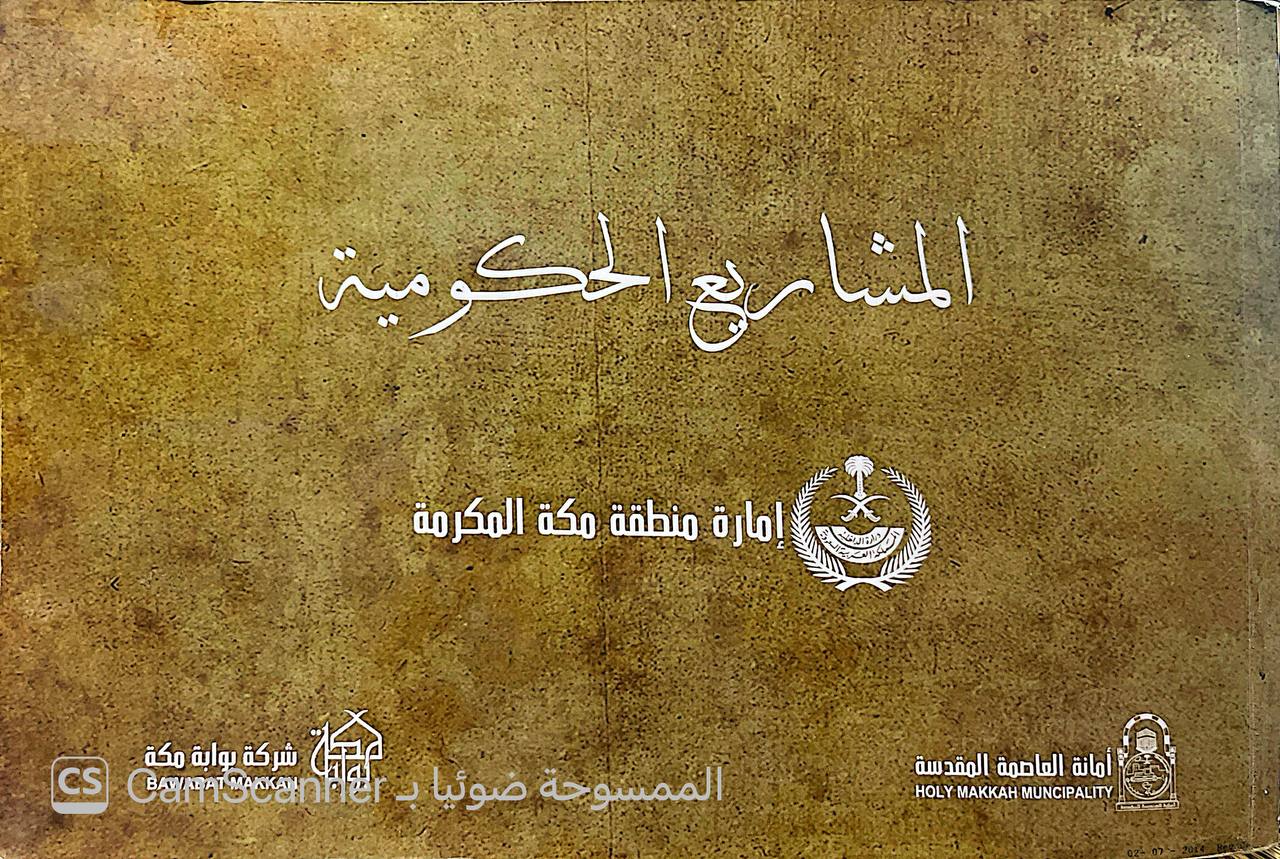 المشاريع الحكومية
إمارة منطقة مكة المكرمة
وزارة الداخلية
المملكة العربية السعودية
أمانة العاصمة المقدسة
HOLY MAKKAH MUNCIPALITY
شركة بوابة مكة
BAWABAT MAKKAH
مكة
بوابة
CS CamScanner الممسوحة ضوئيا بـ
02-07-2014